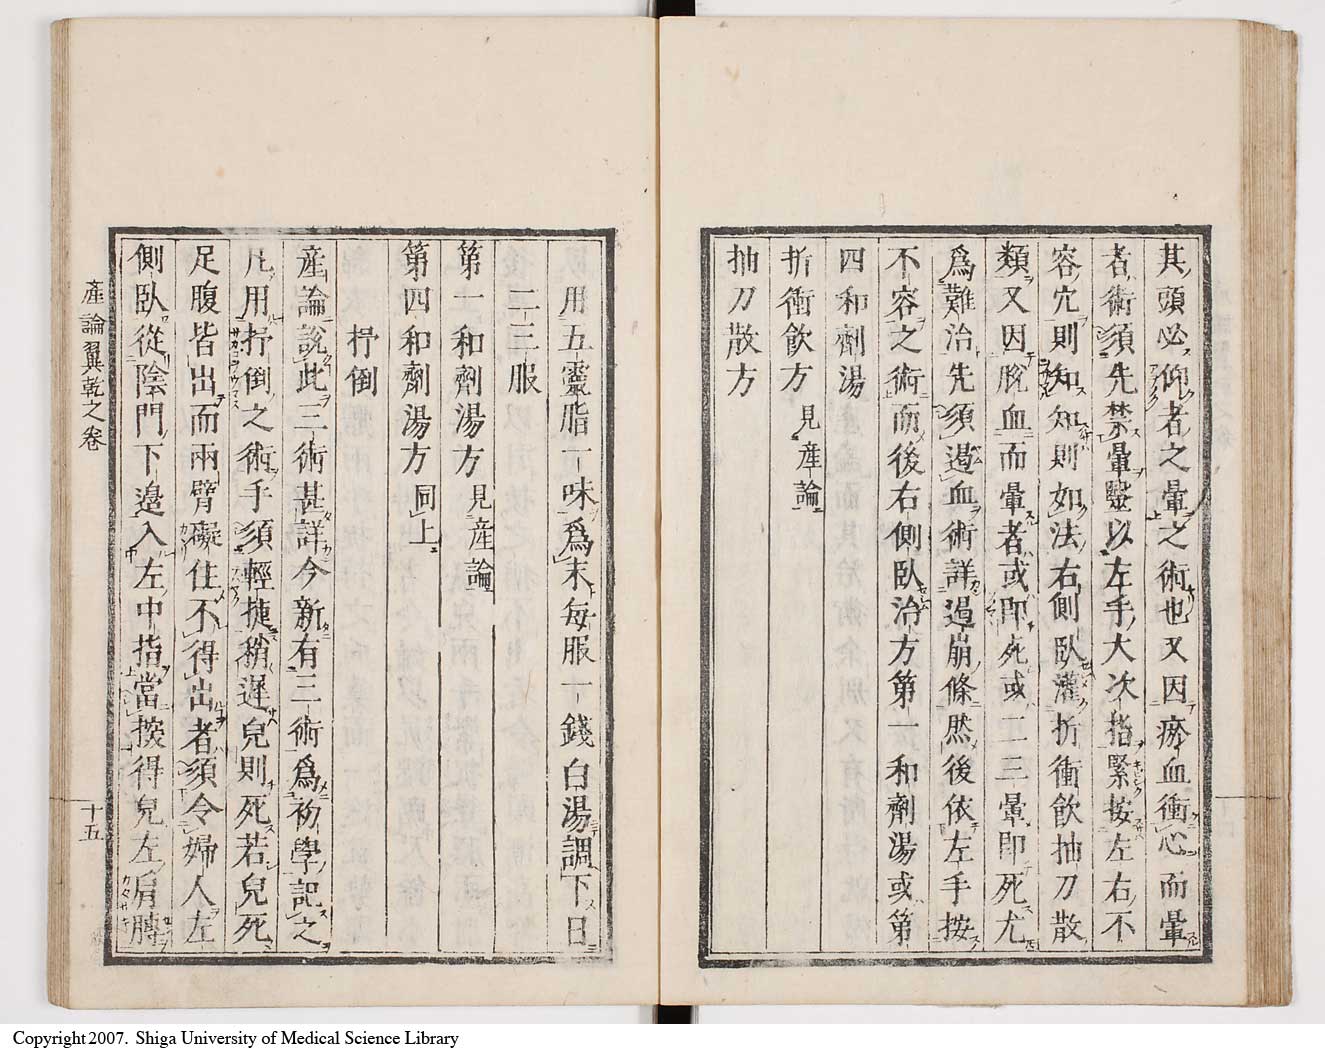 其頭必仰者之暈之術也又因瘀血衝心而暈
者術須先禁暈竪以左手大次指緊按左右不
容穴則知知則如法右側臥灌折衝飲抽刀散
類又因脫血而暈者或即死或二三暈即死尤
爲難治先須遏血術詳遏崩條然後依左手按
不容之術而後右側臥治方第一和劑湯或第
四和劑湯
折衝飲方 見產論
抽刀散方
用五靈脂一味爲末每服一錢白湯調下日
二三服
第一和劑湯方 見産論
第四和劑湯方 同上
抒倒
産論說此三術甚詳今新有三術爲初學記之
凡用抒倒之術手須輕捷稍遲兒則死若兒死
足腹皆出而兩臂礙住不得出者須令婦人左
側臥從陰門下邊入左中指當揬得兒左肩膊
產論翼乾之卷
十五
Copyright 2007. Shiga University of Medical Science Library